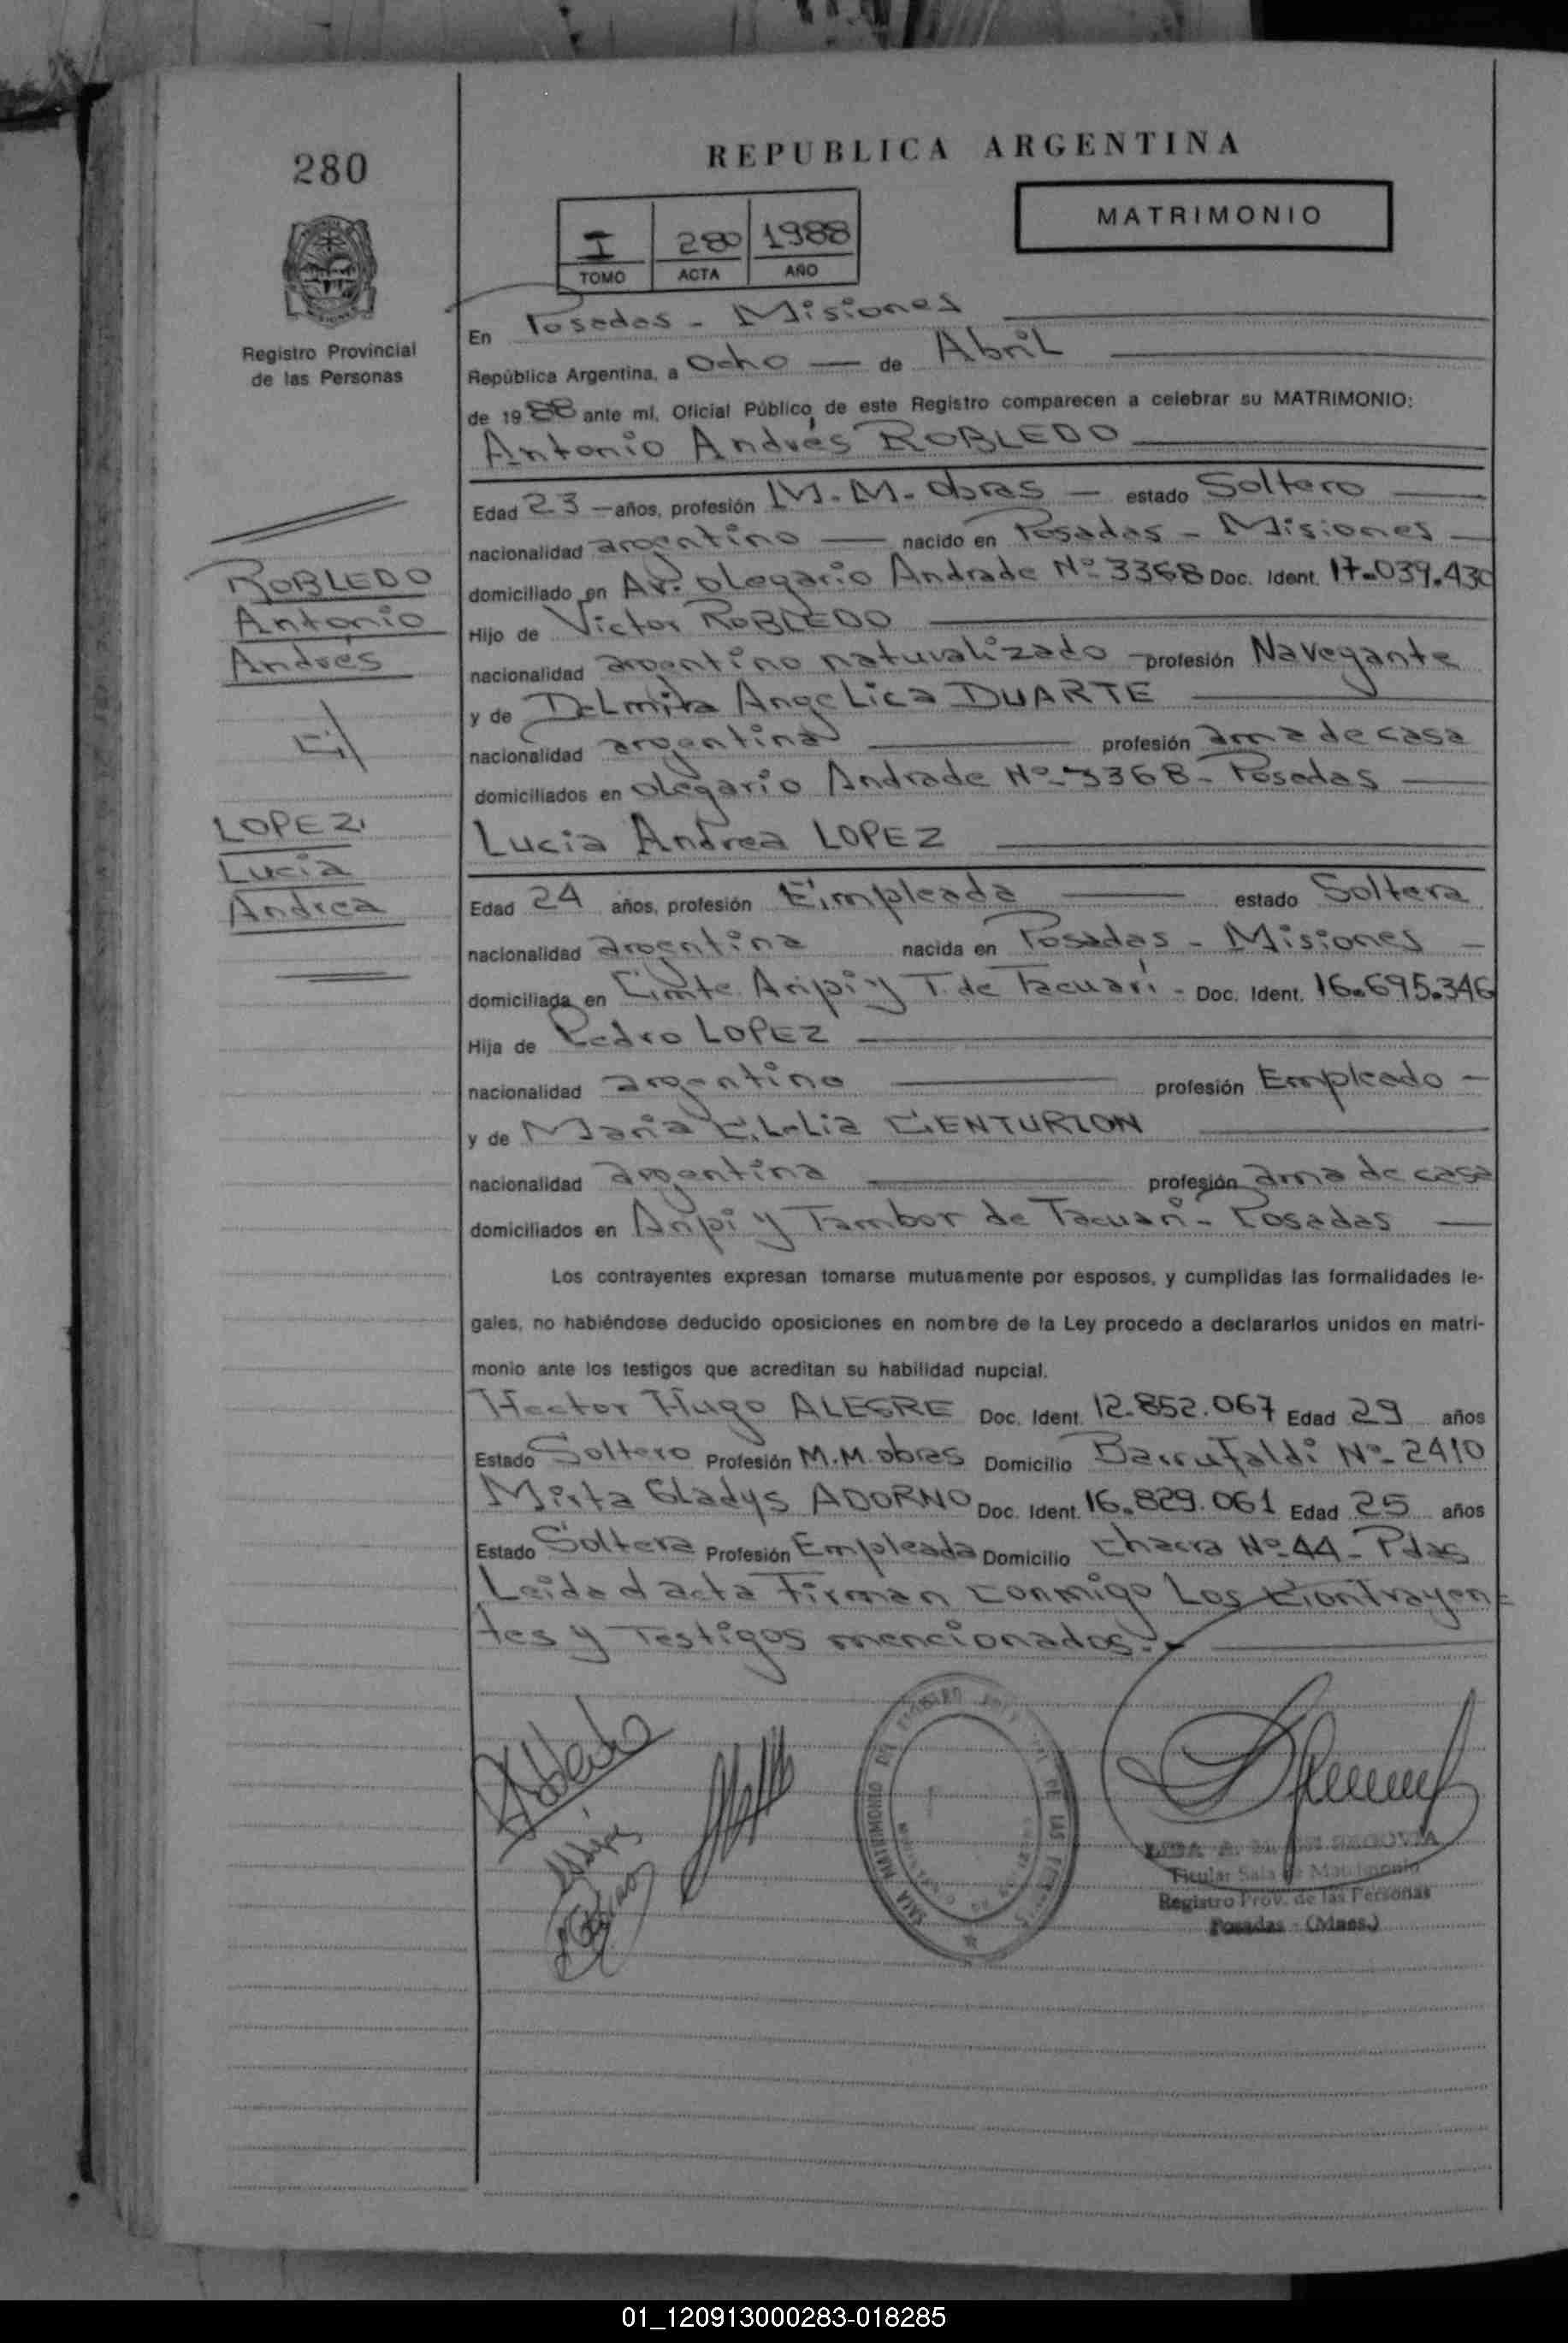 280
REPUBLICA ARGENTINA
MATRIMONIO
I 280 1988
TOMO ACTA AÑO
Registro Provincial
de las Personas
En Posadas - Misiones
República Argentina, a Ocho de Abril
de 1988 ante mí, Oficial Público de este Registro comparecen a celebrar su MATRIMONIO:
Antonio Andrés ROBLEDO
Edad 23 años, profesión M.M. Obras estado Soltero
nacionalidad argentino nacido en Posadas - Misiones
domiciliado en Av. Olegario Andrade Nº 3368 Doc. Ident. 17.039.430
Hijo de Victor ROBLEDO
nacionalidad argentino naturalizado profesión Navegante
y de Delmira Angelica DUARTE
nacionalidad argentina profesión ama de casa
domiciliados en Olegario Andrade Nº 3368 - Posadas
Lucia Andrea LOPEZ
Edad 24 años, profesión Empleada estado Soltera
nacionalidad argentina nacida en Posadas - Misiones
domiciliada en Aripi y T. de Tacuarí - Doc. Ident. 16.695.346
Hija de Pedro LOPEZ
nacionalidad argentino profesión Empleado
y de Maria CENTURION
nacionalidad argentina profesión ama de casa
domiciliados en Aripi y Tambor de Tacuarí - Posadas
Los contrayentes expresan tomarse mutuamente por esposos, y cumplidas las formalidades le-
gales, no habiéndose deducido oposiciones en nombre de la Ley procedo a declararlos unidos en matri-
monio ante los testigos que acreditan su habilidad nupcial.
Hector Hugo ALEGRE Doc. Ident. 12.852.067 Edad 29 años
Estado Soltero Profesión M.M. obras Domicilio Barrufaldi Nº 2410
Mirta Gladys ADORNO Doc. Ident. 16.829.061 Edad 25 años
Estado Soltera Profesión Empleada Domicilio Chacra Nº 44 - Pdas
Leida el acta Firman conmigo Los Contrayen-
tes y Testigos mencionados.-
ROBLEDO
Antonio
Andrés
c/
LOPEZ
Lucia
Andrea
SEGOVIA
Titular Sala de Matrimonio
Registro Prov. de las Personas
Posadas - (Mnes.)
SALA MATRIMONIO
01_120913000283-018285